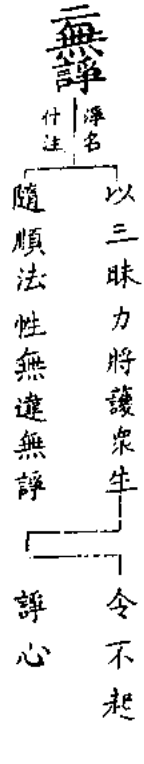 二無諍
淨名
什注
以三昧力將護眾生
令不起
諍心
隨順法性無違無諍